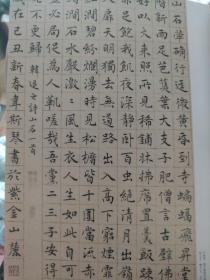 山石犖确行徑微黃昏到寺蝙蝠飛昇堂
階新雨足芭蕉葉大支子肥僧言古壁
好以火來照所見稀鋪牀拂席置羹飯
足飽我飢夜深靜臥百蟲絕清月出嶺
扉天明獨去無道路出入高下窮煙
澗碧紛爛漫時見松櫪皆十圍當流赤
激激風生衣人生如此自可
必局促爲人鞿嗟哉吾黨二三子安得
不更歸 韓退之詩山石一首
歲在己丑新春尊斯琴書於紫金山麓